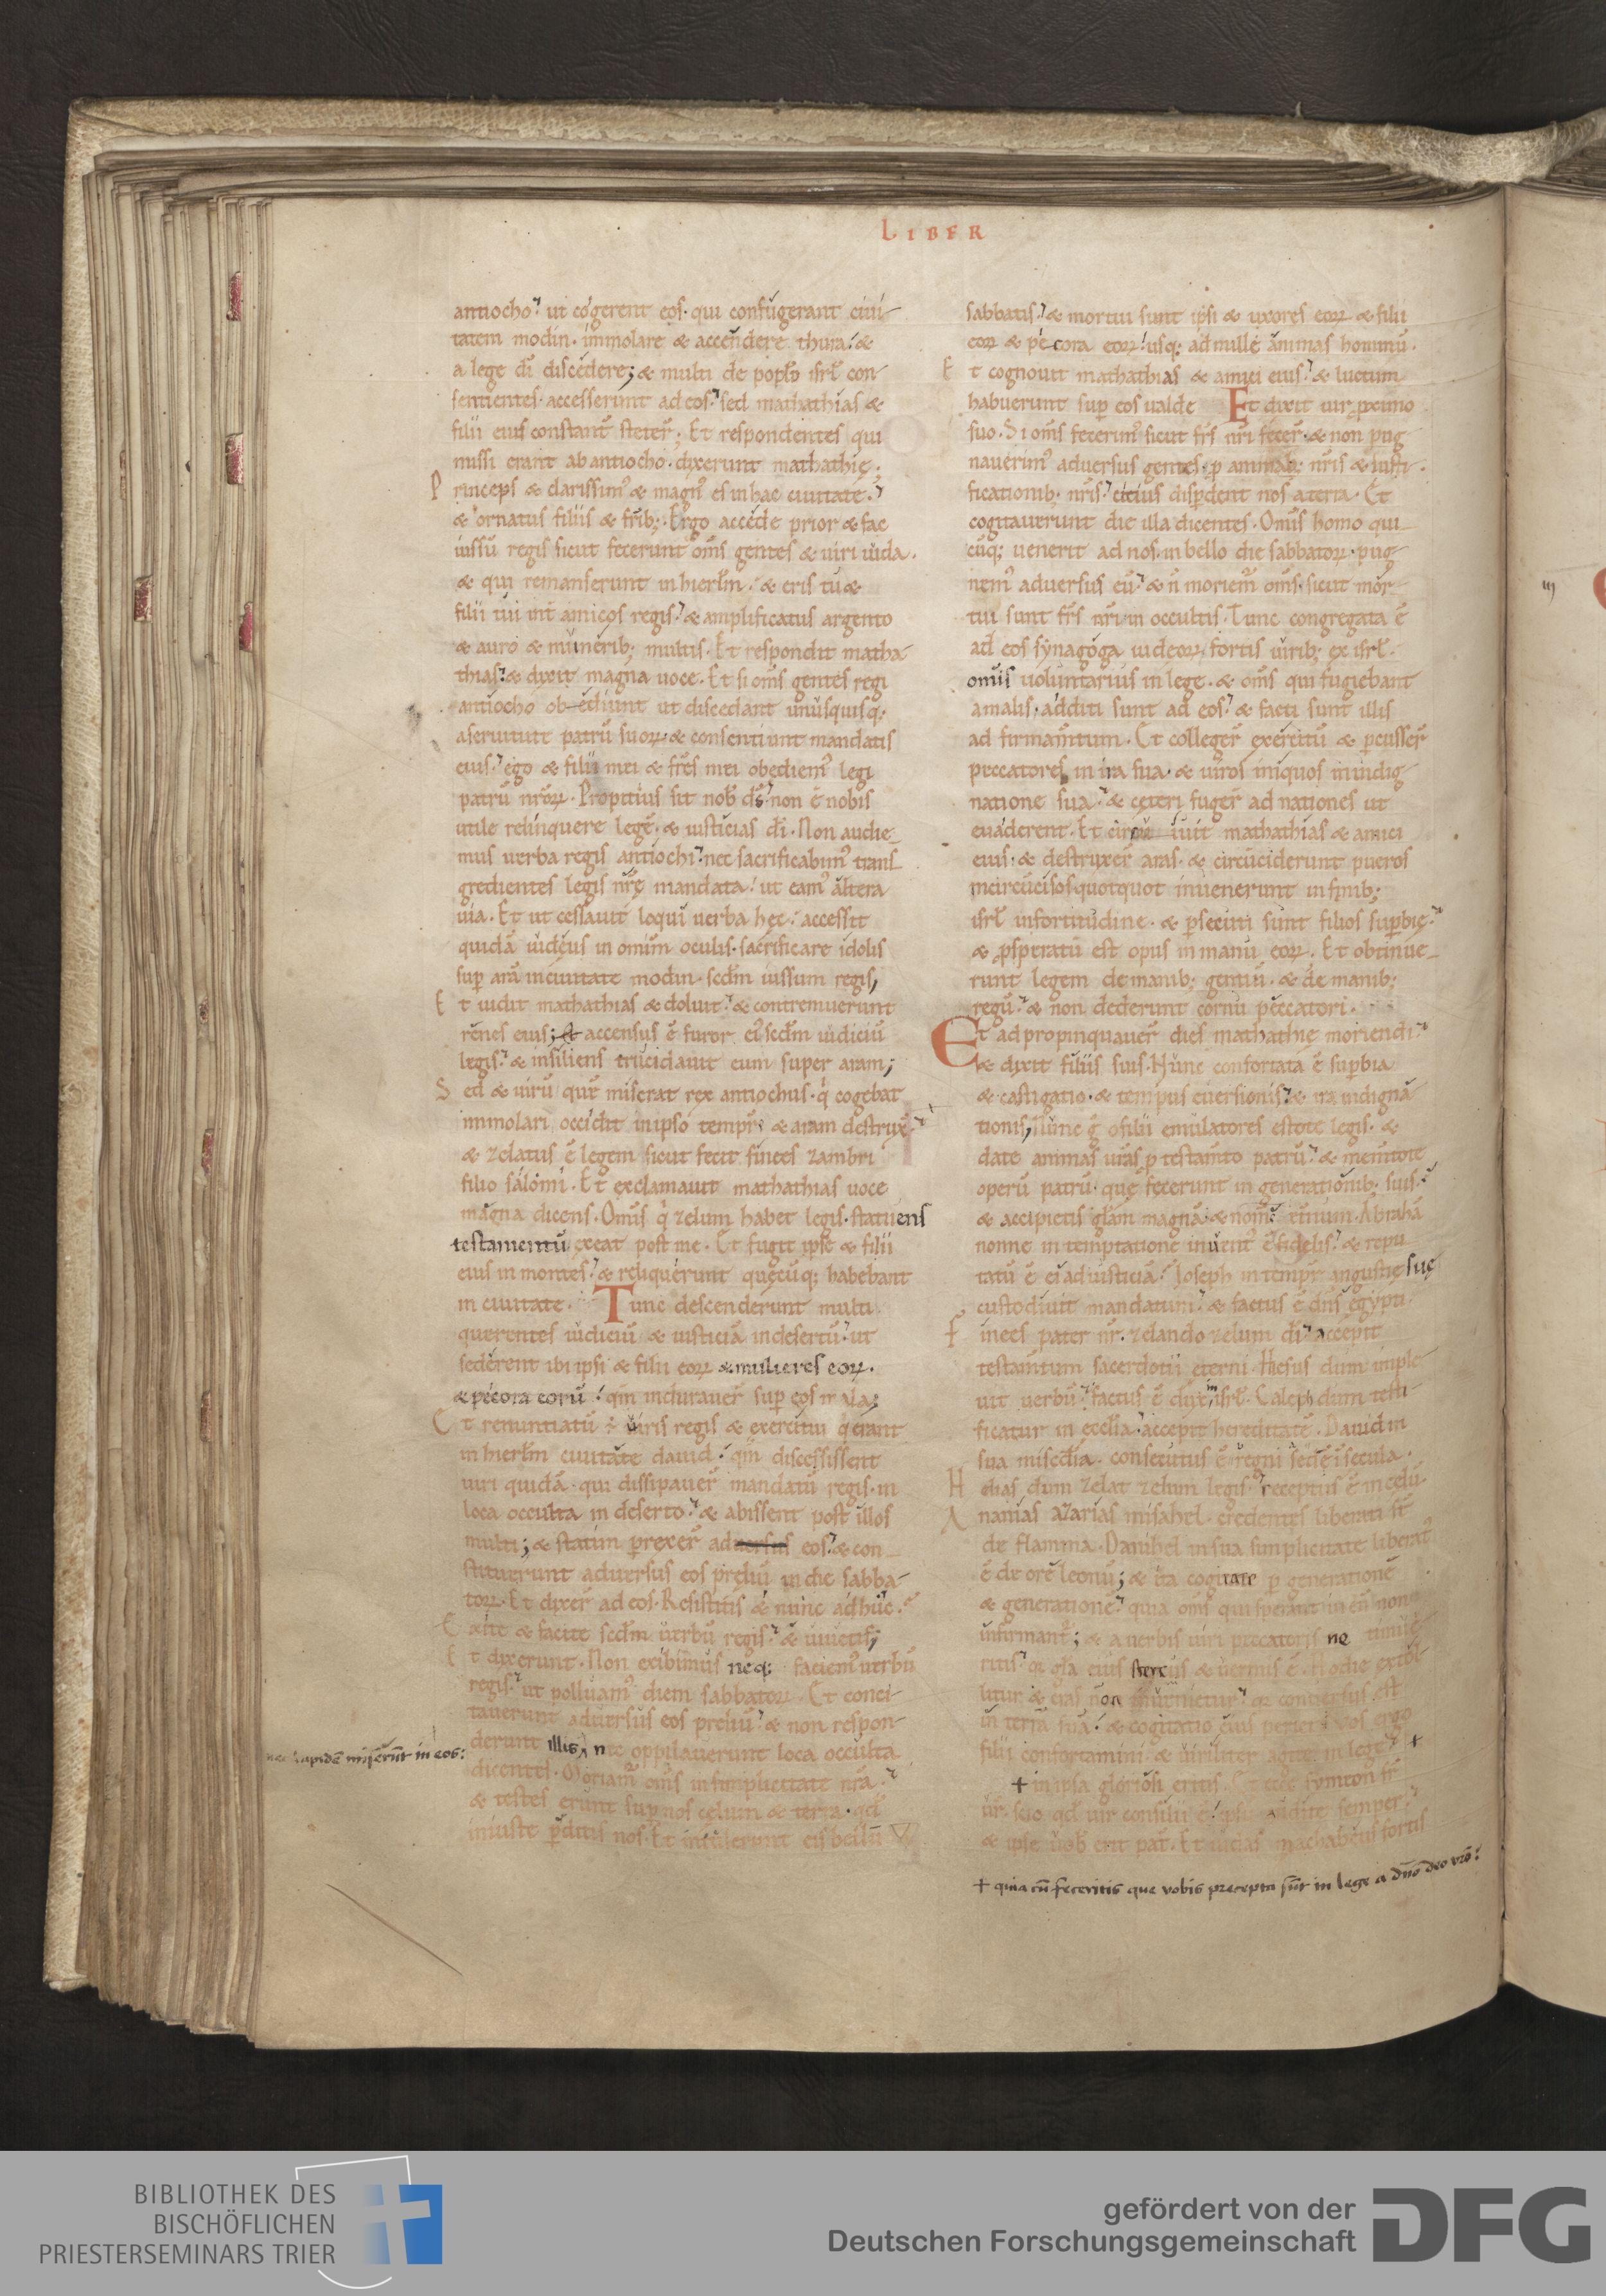 LIBER
antiocho ut cogerent eos · qui confugerant ciui-
tatem modin · immolare & accendere thura & 
a lege dī discedere; & multi de popl̄o isrl̄ con-
sentientes · accesserunt ad eos sed mathathias &
filii eius constant̄ steter̄; Et respondentes qui
missi erant ab antiocho · dixerunt mathathię ·
Princeps & clarissim' & magn' es in hac ciuitate ·
& ornatus filiis & frīb; · Ergo accede prior & fac
iussū regis sicut fecerunt om̄s gentes & uiri iuda ·
& qui remanserunt in hierl̄m · & eris tu &
filii tui int̄ amicos regis & amplificatus argento
& auro & munerib; multis · Et respondit matha-
thias & dixit magna uoce · Et si om̄s gentes regi
antiocho obediunt ut discedant unusquisq;
a seruitute patrū suoꝝ · & consentiunt mandatis
eius ego & filii mei & fr̄es mei obediem' legi
patrū nr̄oꝝ · Propitius sit nob̄ ds̄ non ē nobis
utile relinquere legē · & iusticias dī · Non audie-
mus uerba regis antiochi nec sacrificabim' trans-
gredientes legis nr̄ę mandata ut eam' altera
uia · Et ut cessauit loqui uerba hęc accessit
quidā iudęus in omniū oculis · sacrificare idolis
sup arā in ciuitate modin · scd̄m iussum regis,
Et uidit mathathias & doluit & contremuerunt
renes eius; & accensus ē furor ei' scd̄m iudiciū
legis & insiliens trucidauit eum super aram;
Sed & uirū quē miserat rex antiochus · q̇ cogebat
immolari occidit in ipso tempr̄ & aram destrux̄
& zelatus ē legem sicut fecit finees zambri
filio salomi · Et exclamauit mathathias uoce
magna dicens · Om̄s q̇ zelum habet legis · statuens
testamentū exeat post me · Et fugit ipse & filii
eius in montes & reliquerunt quęcūq; habebant
in ciuitate · Tunc descenderunt multi
querentes iudiciū & iusticiā in desertū ut
sederent ibi ipsi & filii eoꝝ & mulieres eoꝝ ·
& pecora eorū qm̄ induraver̄ sup eos mala;
Et renuntiatū ÷ uiris regis & exercitui q̇ erant
in hierl̄m ciuitate dauid qm̄ discessissent
uiri quidā · qui dissipauer̄ mandatū regis · in
loca occulta in deserto & abissent post illos
multi; & statim perrexer̄ aduersus eos & con-
stituerunt aduersus eos prelïu in die sabba-
toꝝ · Et dixer̄ ad eos · Resistitis & nunc adhuc ·
Exite & facite scd̄m uerbū regis & uiuetis;
Et dixerunt · Non exibimus neq; faciem' uerbū
regis ut polluam' diem sabbatoꝝ · Et conci-
tauerunt aduersus eos preliū & non respon-
nec lapidē miserūt in eos:
derunt illis, nec oppilauerunt loca occulta
dicentes · Moriam̄ om̄s in simplicitate nr̄a ·
& testes erunt sup nos celum & terra · qd̄
iniuste perditis nos · Et intulerunt eis bellū
sabbatis & mortui sunt ipsi & uxores eoꝝ & filii
eoꝝ & pecora eoꝝ usq; ad mille animas hominū ·
Et cognouit mathathias & amici eius & luctum
habuerunt sup eos ualde Et dixit uir proximo
suo · Si om̄s fecerim' sicut fr̄s nr̄i fecer̄ · & non pug
nauerim' aduersus gentes p animab; nr̄is & iusti-
ficationib; nr̄is citius disperdent nos a terra · Et
cogitauerunt die illa dicentes · Om̄s homo qui
cūq; uenerit ad nos in bello die sabbatoꝝ · pug
nem' aduersus eū & n̄ moriem̄ om̄s · sicut mor-
tui sunt fr̄s nr̄i in occultis · Tunc congregata ē
ad eos synagoga iudeoꝝ fortis uirib; ex isrl̄ ·
omīs uoluntarius in lege · & om̄s qui fugiebant
a malis · additi sunt ad eos & facti sunt illis
ad firmam̄tum · Et colleger̄ exercitū & percusser̄
peccatores in ira sua · & uiros iniquos in indig
natione sua & ceteri fuger̄ ad nationes ut
euaderent · Et circuiuit mathathias & amici
eius · & destruxer̄ aras · & circūciderunt pueros
incircūcisos quotquot inuenerunt in finib;
isrl̄ in fortitudine · & persecuti sunt filios superbię
& prosperatū est opus in manu eoꝝ · Et obtinue-
runt legem de manib; gentiū · & de manib;
regū & non dederunt cornu peccatori ·
Et adpropinquauer̄ dies mathathię moriendi
& dixit filiis suis · Nunc confortata ē superbia
& castigatio · & tempus euersionis & ira indigna-
tionis, nunc g̊ o filii emulatores estote legis · &
date animas ur̄as p testam̄to patrū & mem̄tote
operū patrū · que fecerunt in generationib; suis
& accipietis glām magnā · & nom̄ et̄num · Abrahā
nonne in temptatione inuent' ē fidelis & repu
tatū ē ei ad iusticiā Ioseph in tempr̄ angustię suę
custodiuit mandatum & factus ē dn̄s egypti ·
Finees pater nr̄ · zelando zelum dī accepit
testam̄tum sacerdotii eterni · Hiesus dum imple-
uit uerbū factus ē dux in isrl̄ · Caleph dum testi-
ficatur in ecclīa accepit hereditatē · Dauid in
sua misedīa · consecutus ē regni sedē ī secula ·
Helias dum zelat zelum legis receptus ē in celū
Ananias azarias misahel · credentes liberati st̄
de flamma · Danihel in sua simplicitate liberat'
ē de ore leonū; & ita cogitate p generationē
& generationē quia om̄s qui sperant in eū non
infirmant̄; & a uerbis uiri peccatoris ne timue-
ritis qr glā eius stercus & uermis ē · Hodie extol
litur & cras non inuenietur qr conuersus est
in terrā suā & cogitatio eius periet · Vos ergo
filii confortamini · & uiriliter agite in lege +
+ in ipsa gloriosi eritis · Et ecce symeon fr̄
ur̄ · scio qd̄ uir consilii ē ipsū audite semper
& ipse uob̄ erit pat̄ · Et iudas machabeus fortis
+ quia cū feceritis que vobis precepta sūt in lege a dn̄o deo vr̄o:
iij
BIBLIOTHEK DES
BISCHÖFLICHEN
PRIESTERSEMINARS TRIER
gefördert von der
Deutschen Forschungsgemeinschaft
DFG